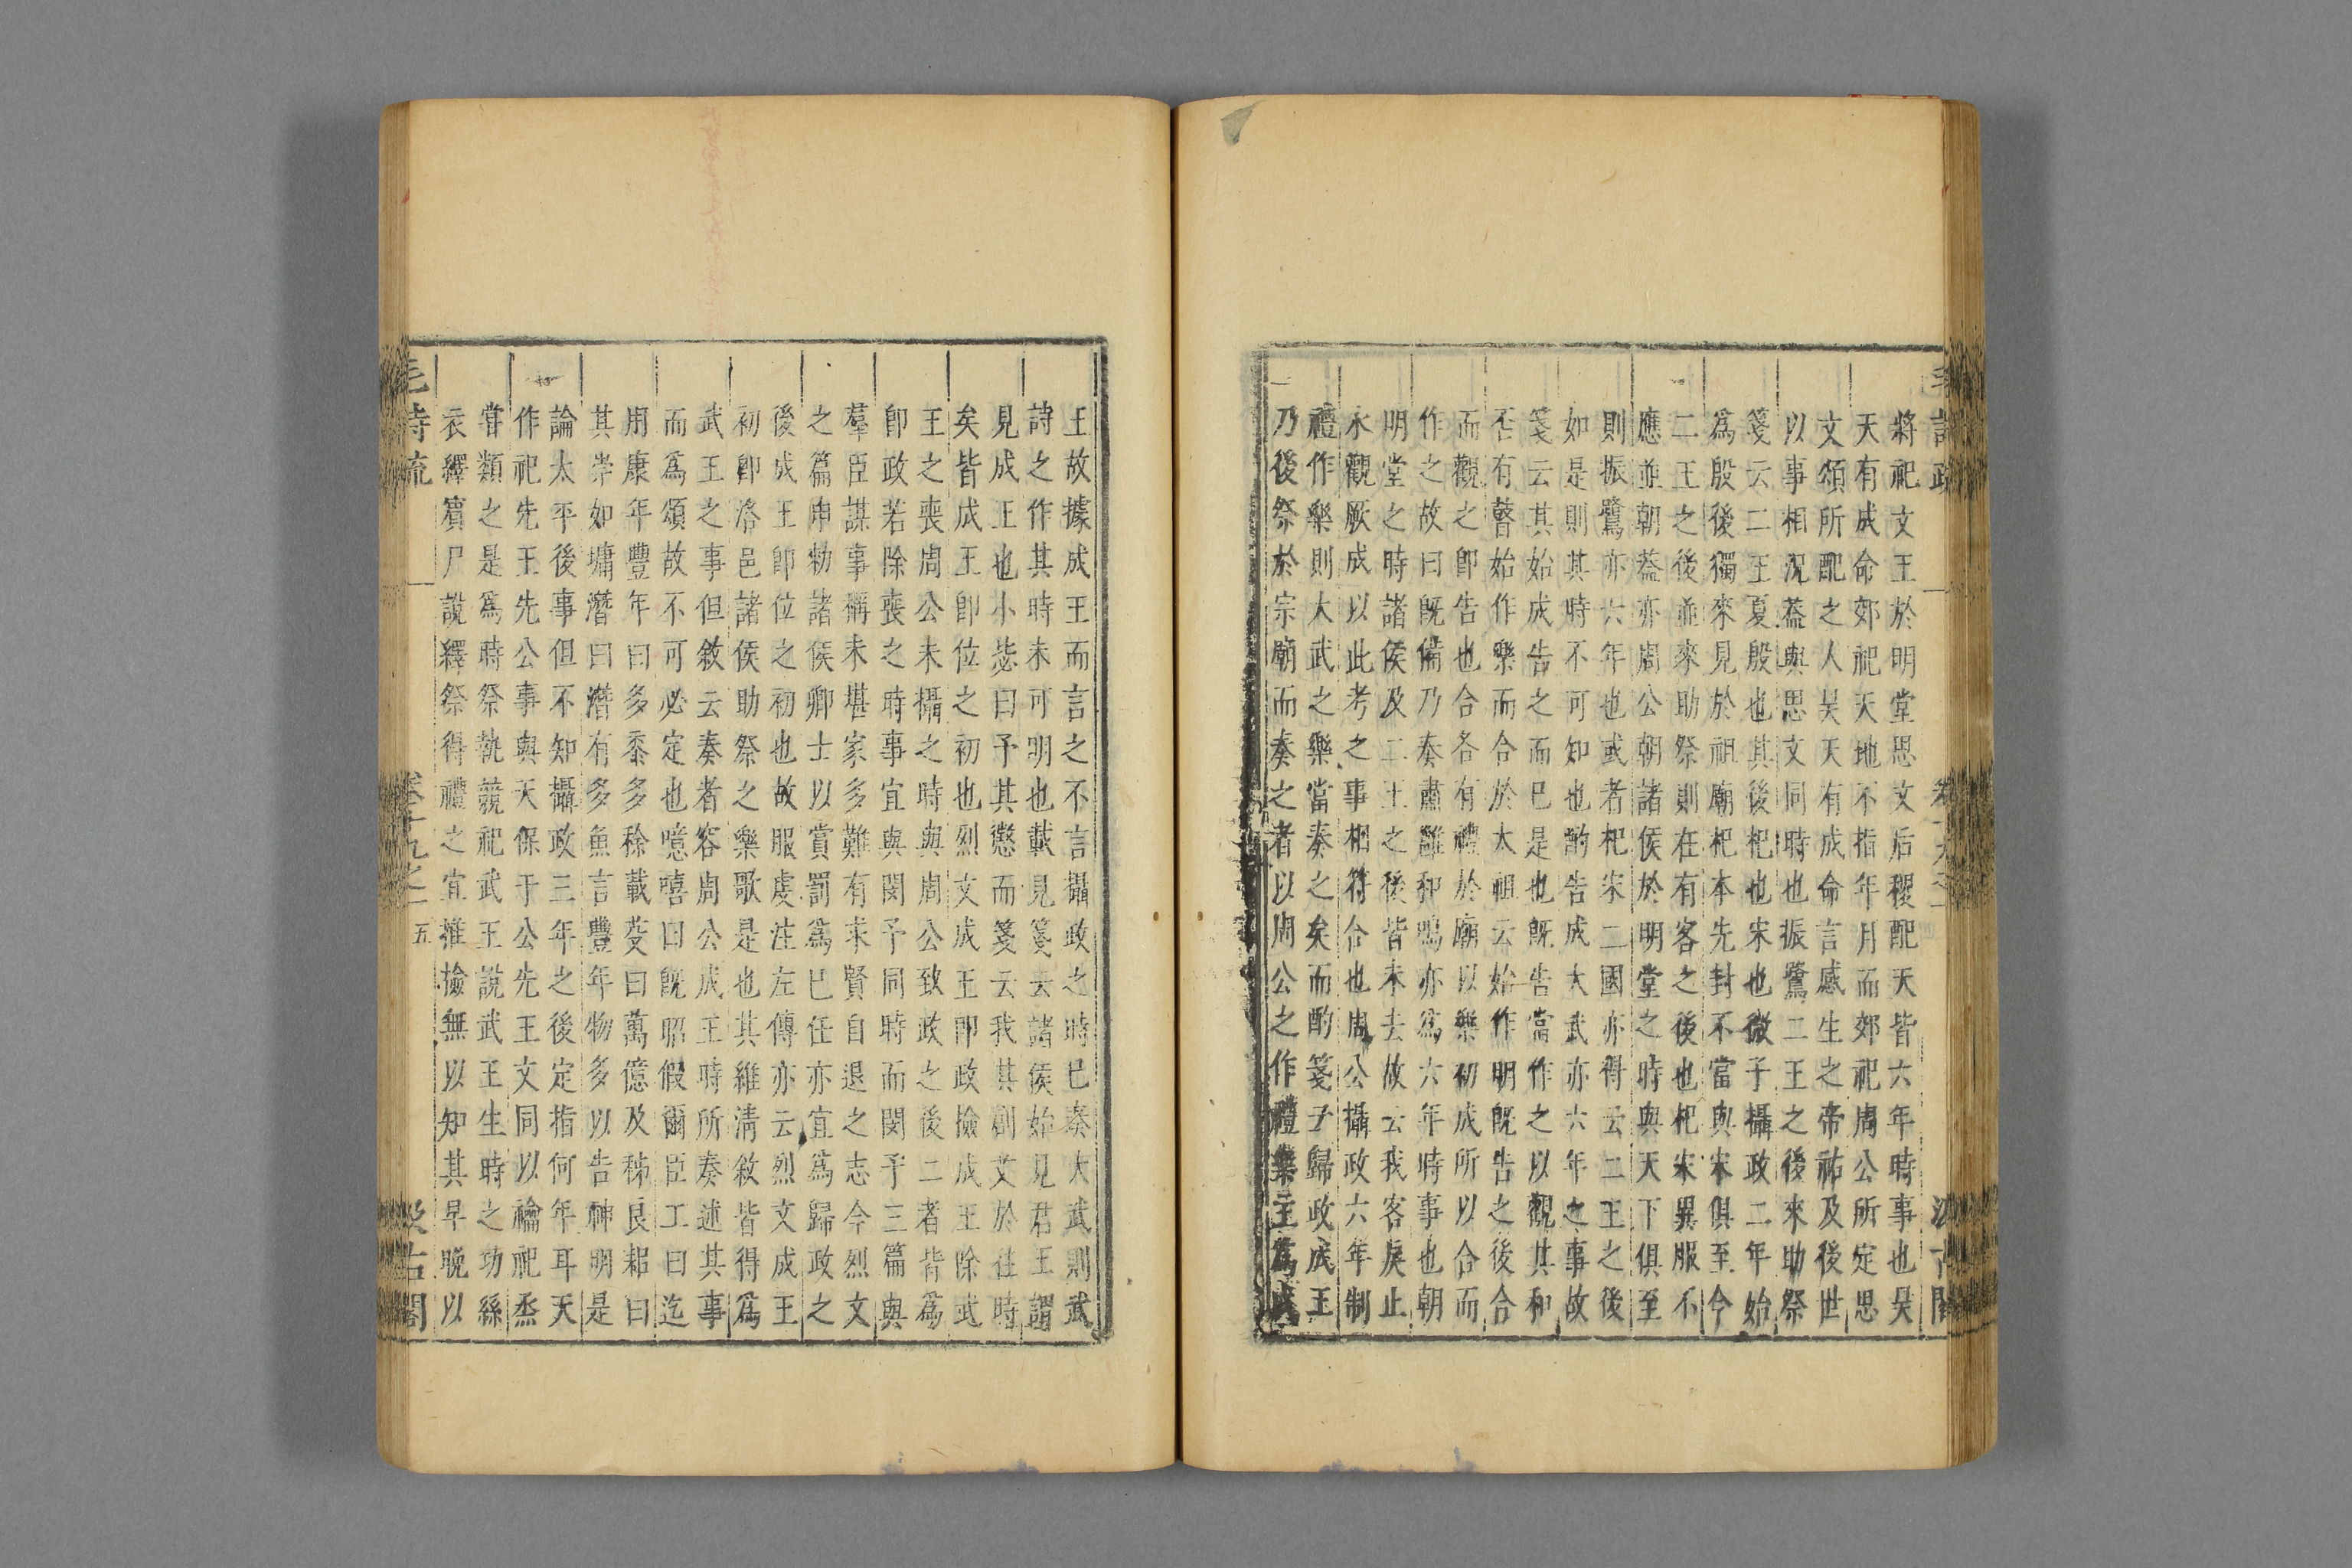 將祀文王於明堂思文后稷配天皆六年時事也昊
天有成命郊祀天地不指年月而郊祀周公所定思
文頌所配之人昊天有成命言感生之帝祐及後世
以事相況蓋與思文同時也振鷺二王之後來助祭
箋云二王夏殷也其後杞也宋也微子攝政二年始
爲殷後獨來見於祖廟杞本先封不當與宋俱至今
二王之後並來助祭則在有客之後也杞宋異服不
應並朝蓋亦周公朝諸侯於明堂之時與天下俱至
則振鷺亦六年也或者杞宋二國亦得云二王之後
如是則其時不可知也酌告成大武亦六年之事故
箋云其始成告之而巳是也旣告當作之以觀其和
否有瞽始作樂而合於太祖云始作明旣告之後合
而觀之卽告也合各有禮於廟以樂初成所以合而
作之故曰旣備乃奏肅雝和鳴亦爲六年時事也朝
明堂之時諸侯及二王之後皆未去故云我客戾止
永觀厥成以此考之事相符合也周公攝政六年制
禮作樂則大武之樂當奏之矣而酌箋云歸政成王
乃後祭於宗廟而奏之者以周公之作禮樂主爲成
王故據成王而言之不言攝政之時巳奏大武則武
詩之作其時未可明也載見箋云諸侯始見君王謂
見成王也小毖曰予其懲而箋云我其創艾於往時
矣皆成王卽位之初也烈文成王卽政檢成王除武
王之喪周公未攝之時與周公致政之後二者皆爲
卽政若除喪之時事宜與閔予同時而閔予三篇與
羣臣謀事稱未堪家多難有求賢自退之志今烈文
之篇申勑諸侯卿士以賞罰爲巳任亦宜爲歸政之
後成王卽位之初也故服虔注左傳亦云烈文成王
初卽洛邑諸侯助祭之樂歌是也其維清敘皆得爲
武王之事但敘云奏者容周公成王時所奏述其事
而爲頌故不可必定也噫嘻曰旣昭假爾臣工曰迄
用康年豐年曰多黍多稌載芟曰萬億及秭良耜曰
其崇如墉潛曰潛有多魚言豐年物多以告神明是
論太平後事但不知攝政三年之後定指何年耳天
作祀先王先公事與天保于公先王文同以禴祀烝
甞類之是爲時祭執競祀武王說武王生時之功絲
衣繹賓尸說繹祭得禮之宜推檢無以知其早晚以
毛詩疏 卷十九之一 五 汲古閣